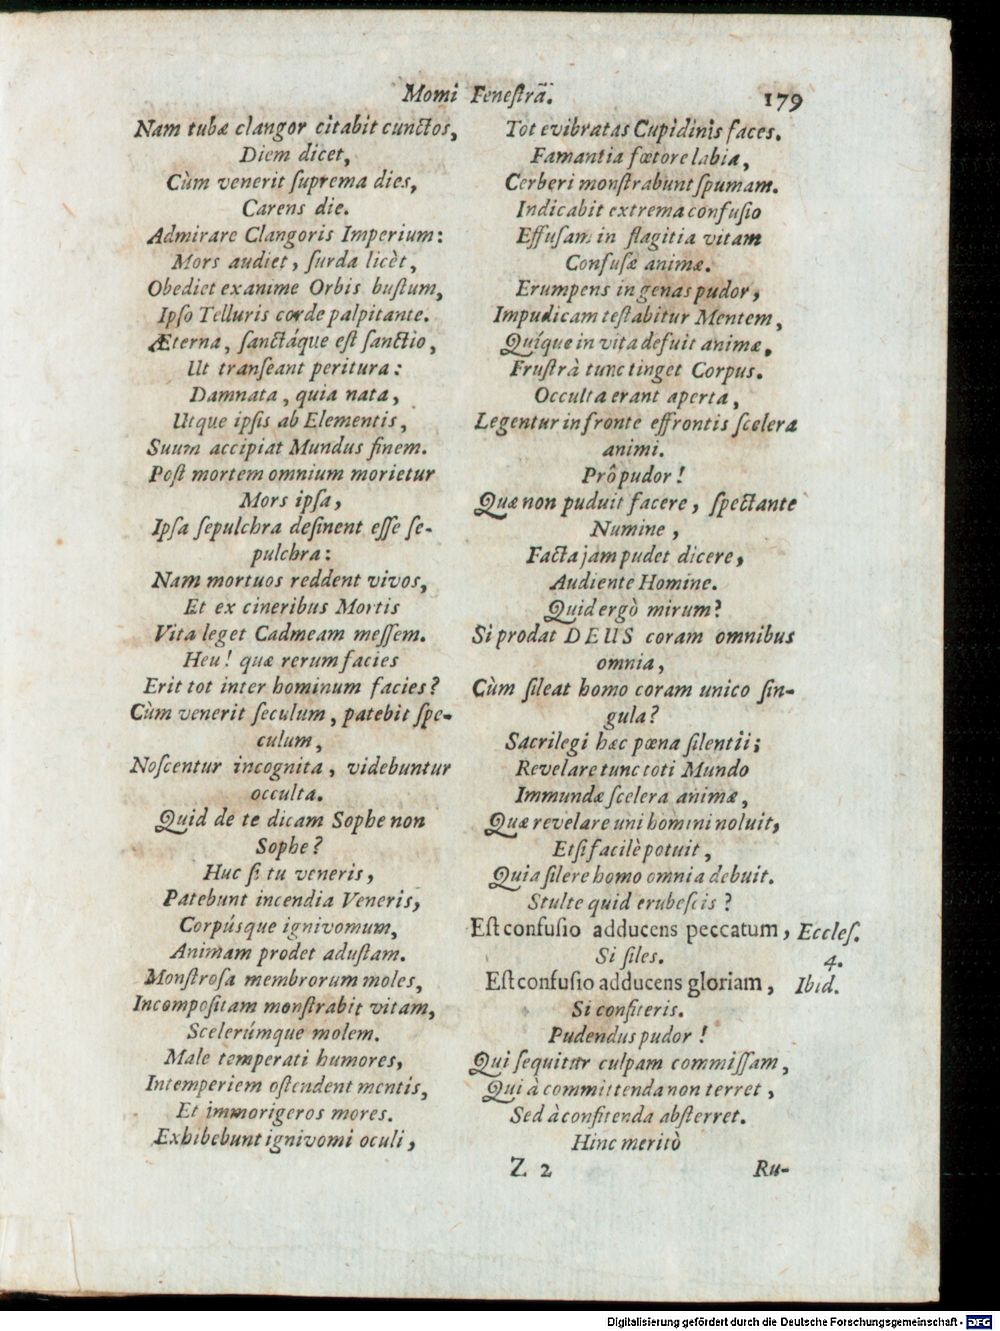 Momi Feneſtrã. 179
Nam tubæ clangor citabit cunctos,
Diem dicet,
Cùm venerit ſuprema dies,
Carens die.
Admirare Clangoris Imperium:
Mors audiet, ſurda licèt,
Obediet exanime Orbis buſtum,
Ipſo Telluris corde palpitante.
Æterna, ſanctáque eſt ſanctio,
Ut tranſeant peritura:
Damnata, quia nata,
Utque ipſis ab Elementis,
Suum accipiat Mundus finem.
Poſt mortem omnium morietur
Mors ipſa,
Ipſa ſepulchra deſinent eſſe ſe-
pulchra:
Nam mortuos reddent vivos,
Et ex cineribus Mortis
Vita leget Cadmeam meſſem.
Heu! quæ rerum facies
Erit tot inter hominum facies?
Cùm venerit ſeculum, patebit ſpe-
culum,
Noſcentur incognita, videbuntur
occulta.
Quid de te dicam Sophe non
Sophe?
Huc ſi tu veneris,
Patebunt incendia Veneris,
Corpúsque ignivomum,
Animam prodet aduſtam.
Monſtroſa membrorum moles,
Incompoſitam monſtrabit vitam,
Scelerúmque molem.
Male temperati humores,
Intemperiem oſtendent mentis,
Et immorigeros mores.
Exhibebunt ignivomi oculi,
Tot evibratas Cupidinis faces.
Famantia fœtore labia,
Cerberi monſtrabunt ſpumam.
Indicabit extrema confuſio
Effuſam in flagitia vitam
Confuſæ animæ.
Erumpens in genas pudor,
Impudicam teſtabitur Mentem,
Quíque in vita defuit animæ,
Fruſtrà tunc tinget Corpus.
Occulta erant aperta,
Legentur in fronte effrontis ſcelera
animi.
Prô pudor!
Quæ non puduit facere, ſpectante
Numine,
Facta jam pudet dicere,
Audiente Homine.
Quid ergò mirum?
Si prodat DEUS coram omnibus
omnia,
Cùm ſileat homo coram unico ſin-
gula?
Sacrilegi hæc pœna ſilentii;
Revelare tunc toti Mundo
Immundæ ſcelera animæ,
Quæ revelare uni homini noluit,
Etſi facilè potuit,
Quia ſilere homo omnia debuit.
Stulte quid erubeſcis?
Eſt confuſio adducens peccatum, Eccleſ.
Si ſiles. 4.
Eſt confuſio adducens gloriam, Ibid.
Si confiteris.
Pudendus pudor!
Qui ſequitur culpam commiſſam,
Qui à committenda non terret,
Sed à confitenda abſterret.
Hinc meritò
Z 2 Ru-
Digitalisierung gefördert durch die Deutsche Forschungsgemeinschaft - DFG